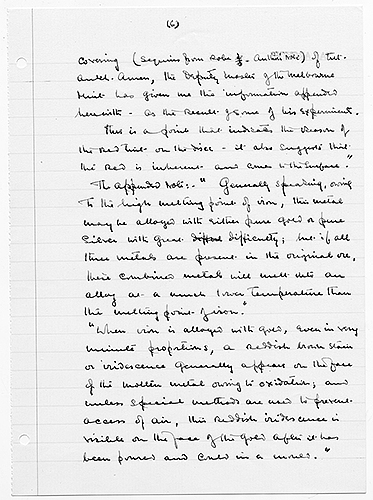 (6)
covering (sequins from robe of - Author's note) of Tut-
ankh-Amen, the Deputy Master of the Melbourne
Mint has given me the information appended
herewith - as the result of some of his experiments.
This is a point that indicates the reason of
the red tint on the disc - it also suggests that
the red is inherent and comes to the surface."
The appended note:- " Generally speaking, owing
to the high melting point of iron, this metal
may be alloyed with either pure gold or pure
silver with great difficulty; but if all
three metals are present in the original ore,
their combined metals will melt into an
alloy at a much lower temperature than
the melting point of iron."
"When iron is alloyed with gold, even in very
minute proportions, a reddish brown stain
or iridescence generally appears on the face
of the molten metal owing to oxidation; and
unless special methods are used to prevent
access of air, this reddish iridescence is
visible on the face of the gold after it has
been poured and cooled in a mould."